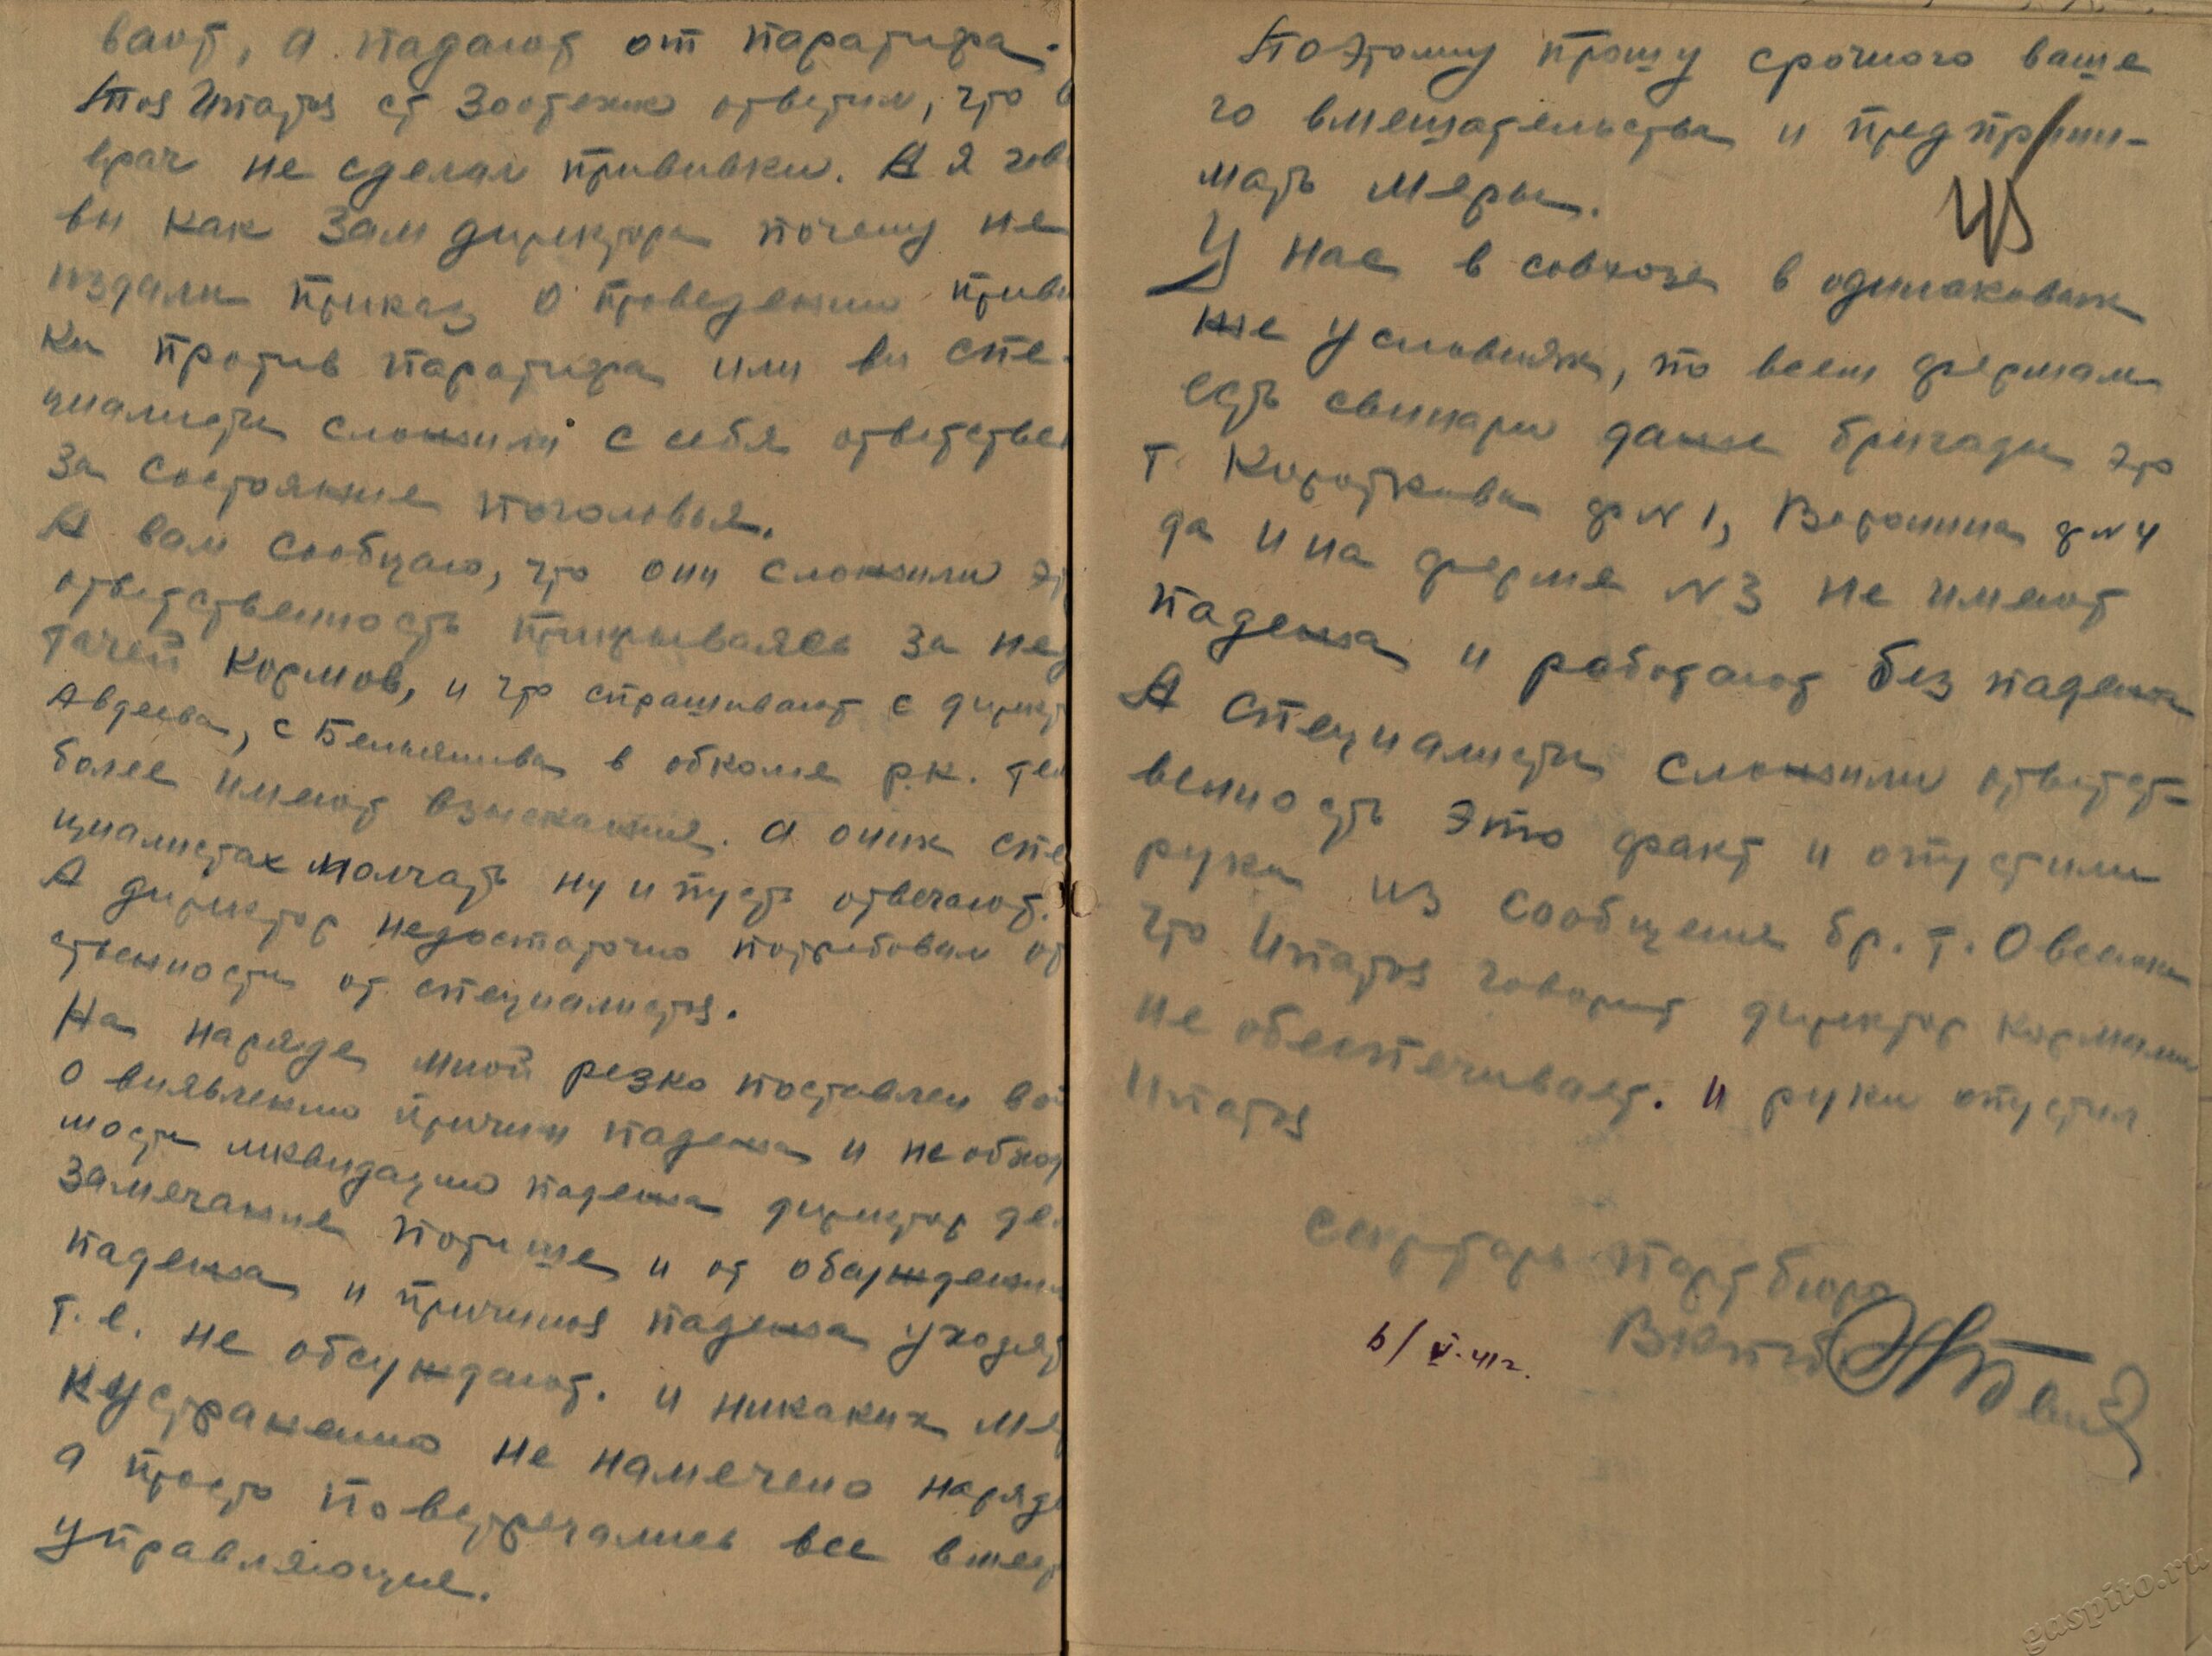 вают, а падают от паратифа.
Ипатов ст зоотехник ответил, что
врач не сделал прививки. А я гов
вы как зам директора почему не
издали приказ о проведении приви
ки против паратифа или вы спе-
циалисты сложили с себя ответствен
за состояние поголовья.
А вам сообщаю, что они сложили эт
ответственность прикрываясь за нед
тачей кормов, и что спрашивают с директ
Авдеева, с Бельянинова в обкоме р.к. тем
более имеют взыскание. а о них спе
циалистах молчать ну и пусть отвечают.
А директор недостаточно потребовал от
ственности от специалистов.
На наряде мной резко поставлен во
о выявлению причин падежа и необход
мости ликвидацию падежа директор де
замечание потише и от обсуждения
падежа и причинов падежа уходят
т.е. не обсуждают. и никаких ме
к устранению не намечено наряд
а просто повстречались все вмест
управляющие.
Поэтому прошу срочного ваше
го вмешательства и предприни-
мать меры.
45
У нас в совхозе в одинаковых
же условиях, по всем фермам
есть свинари даже бригады это
т. Короткова ф N 1, Воронина ф N 4
да и на ферме N 3 не имеют
падежа и работают без падежа
А специалисты сложили ответст-
венность это факт и опустили
руки из сообщения бр. т. Овсянки
что Ипатов говорит директор кормами
не обеспечивает. и руки опустил
Ипатов
Секретарь партбюро
6/V-41г.
gaspito.ru